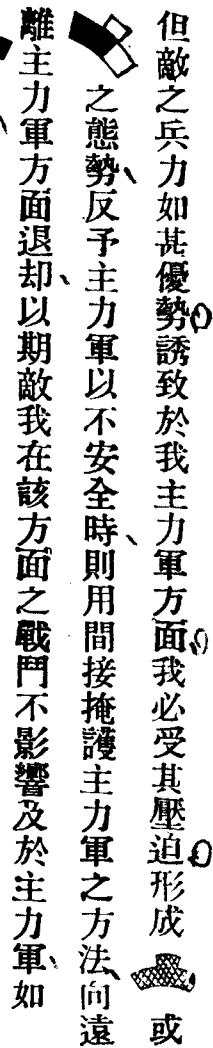 但敵之兵力如甚優勢、誘致於我主力軍方面、我必受其壓迫、形成 或
之態勢、反予主力軍以不安全時、則用間接掩護主力軍之方法、向遠
離主力軍方面退却、以期敵我在該方面之戰鬥不影響及於主力軍、如